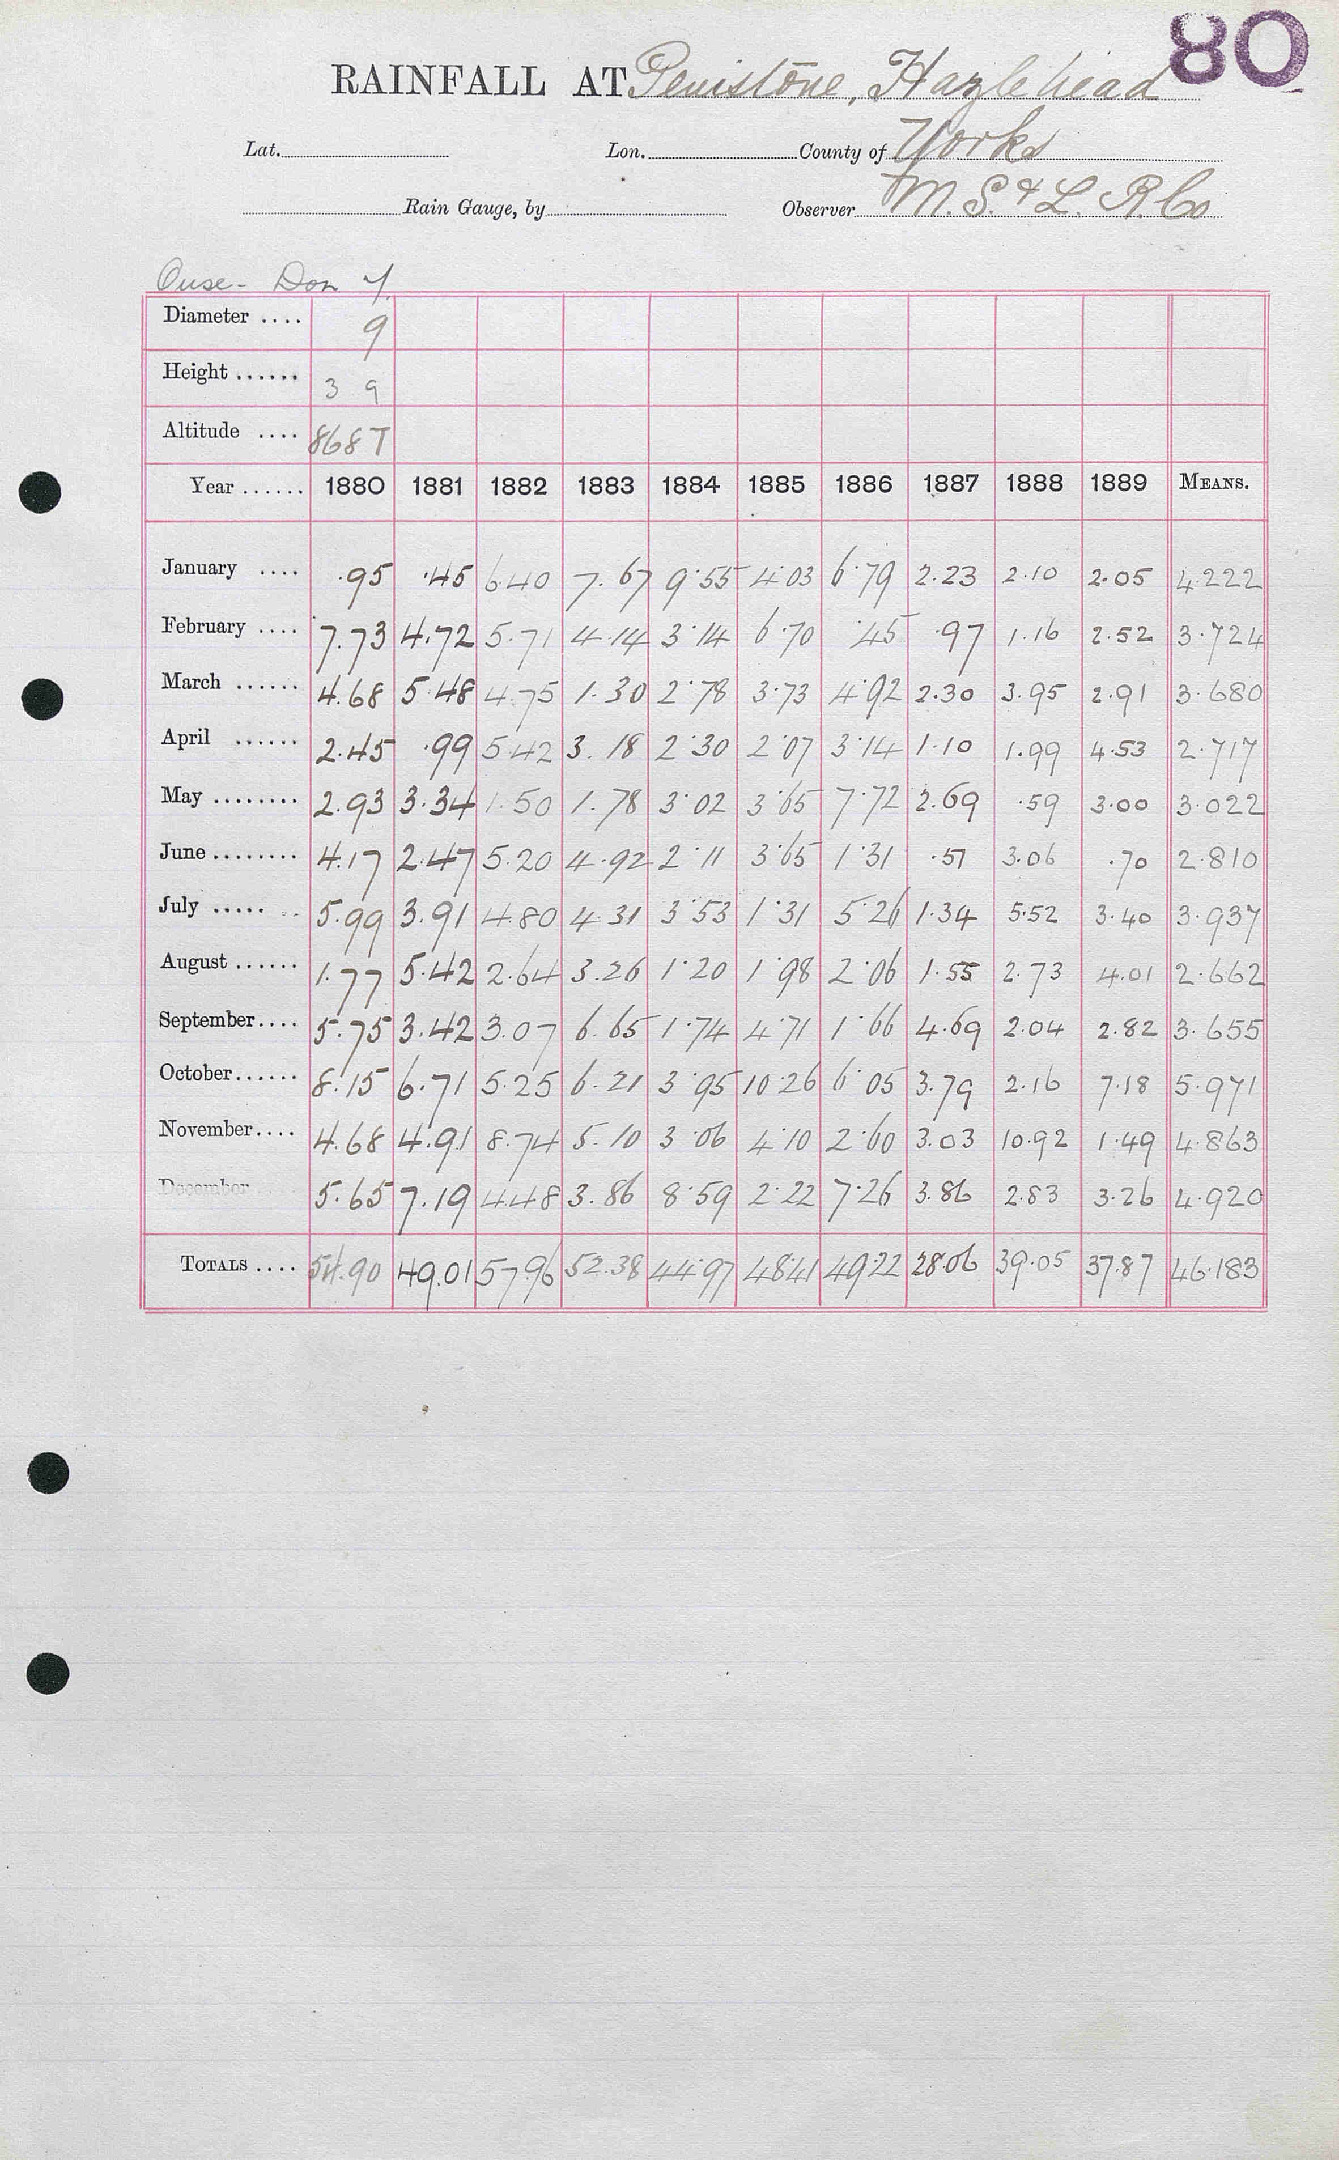 80
RAINFALL AT Penistone, Hazlehead
Lat. Lon. County of Yorks
Rain Gauge, by Observer M. S. & L. R. Co
Ouse - Don Y.
Diameter .... 9
Height ...... 3 9
Altitude .... 868 T
Year ...... 1880 1881 1882 1883 1884 1885 1886 1887 1888 1889 MEANS.
January .... .95 .45 6.40 7.67 9.55 4.03 6.79 2.23 2.10 2.05 4.222
February .... 7.73 4.72 5.71 4.14 3.14 6.70 .45 .97 1.16 2.52 3.724
March ...... 4.68 5.48 4.75 1.30 2.78 3.73 4.92 2.30 3.95 2.91 3.680
April ...... 2.45 .99 5.42 3.18 2.30 2.07 3.14 1.10 1.99 4.53 2.717
May ........ 2.93 3.34 1.50 1.78 3.02 3.65 7.72 2.69 .59 3.00 3.022
June ........ 4.17 2.47 5.20 4.92 2.11 3.65 1.31 .57 3.06 .70 2.810
July ..... .. 5.99 3.91 4.80 4.31 3.53 1.31 5.26 1.34 5.52 3.40 3.937
August ...... 1.77 5.42 2.64 3.26 1.20 1.98 2.06 1.55 2.73 4.01 2.662
September.... 5.75 3.42 3.07 6.65 1.74 4.71 1.66 4.69 2.04 2.82 3.655
October...... 8.15 6.71 5.25 6.21 3.95 10.26 6.05 3.79 2.16 7.18 5.971
November.... 4.68 4.91 8.74 5.10 3.06 4.10 2.60 3.03 10.92 1.49 4.863
December 5.65 7.19 4.48 3.86 8.59 2.22 7.26 3.86 2.83 3.26 4.920
TOTALS .... 54.90 49.01 57.96 52.38 44.97 48.41 49.22 28.06 39.05 37.87 46.183